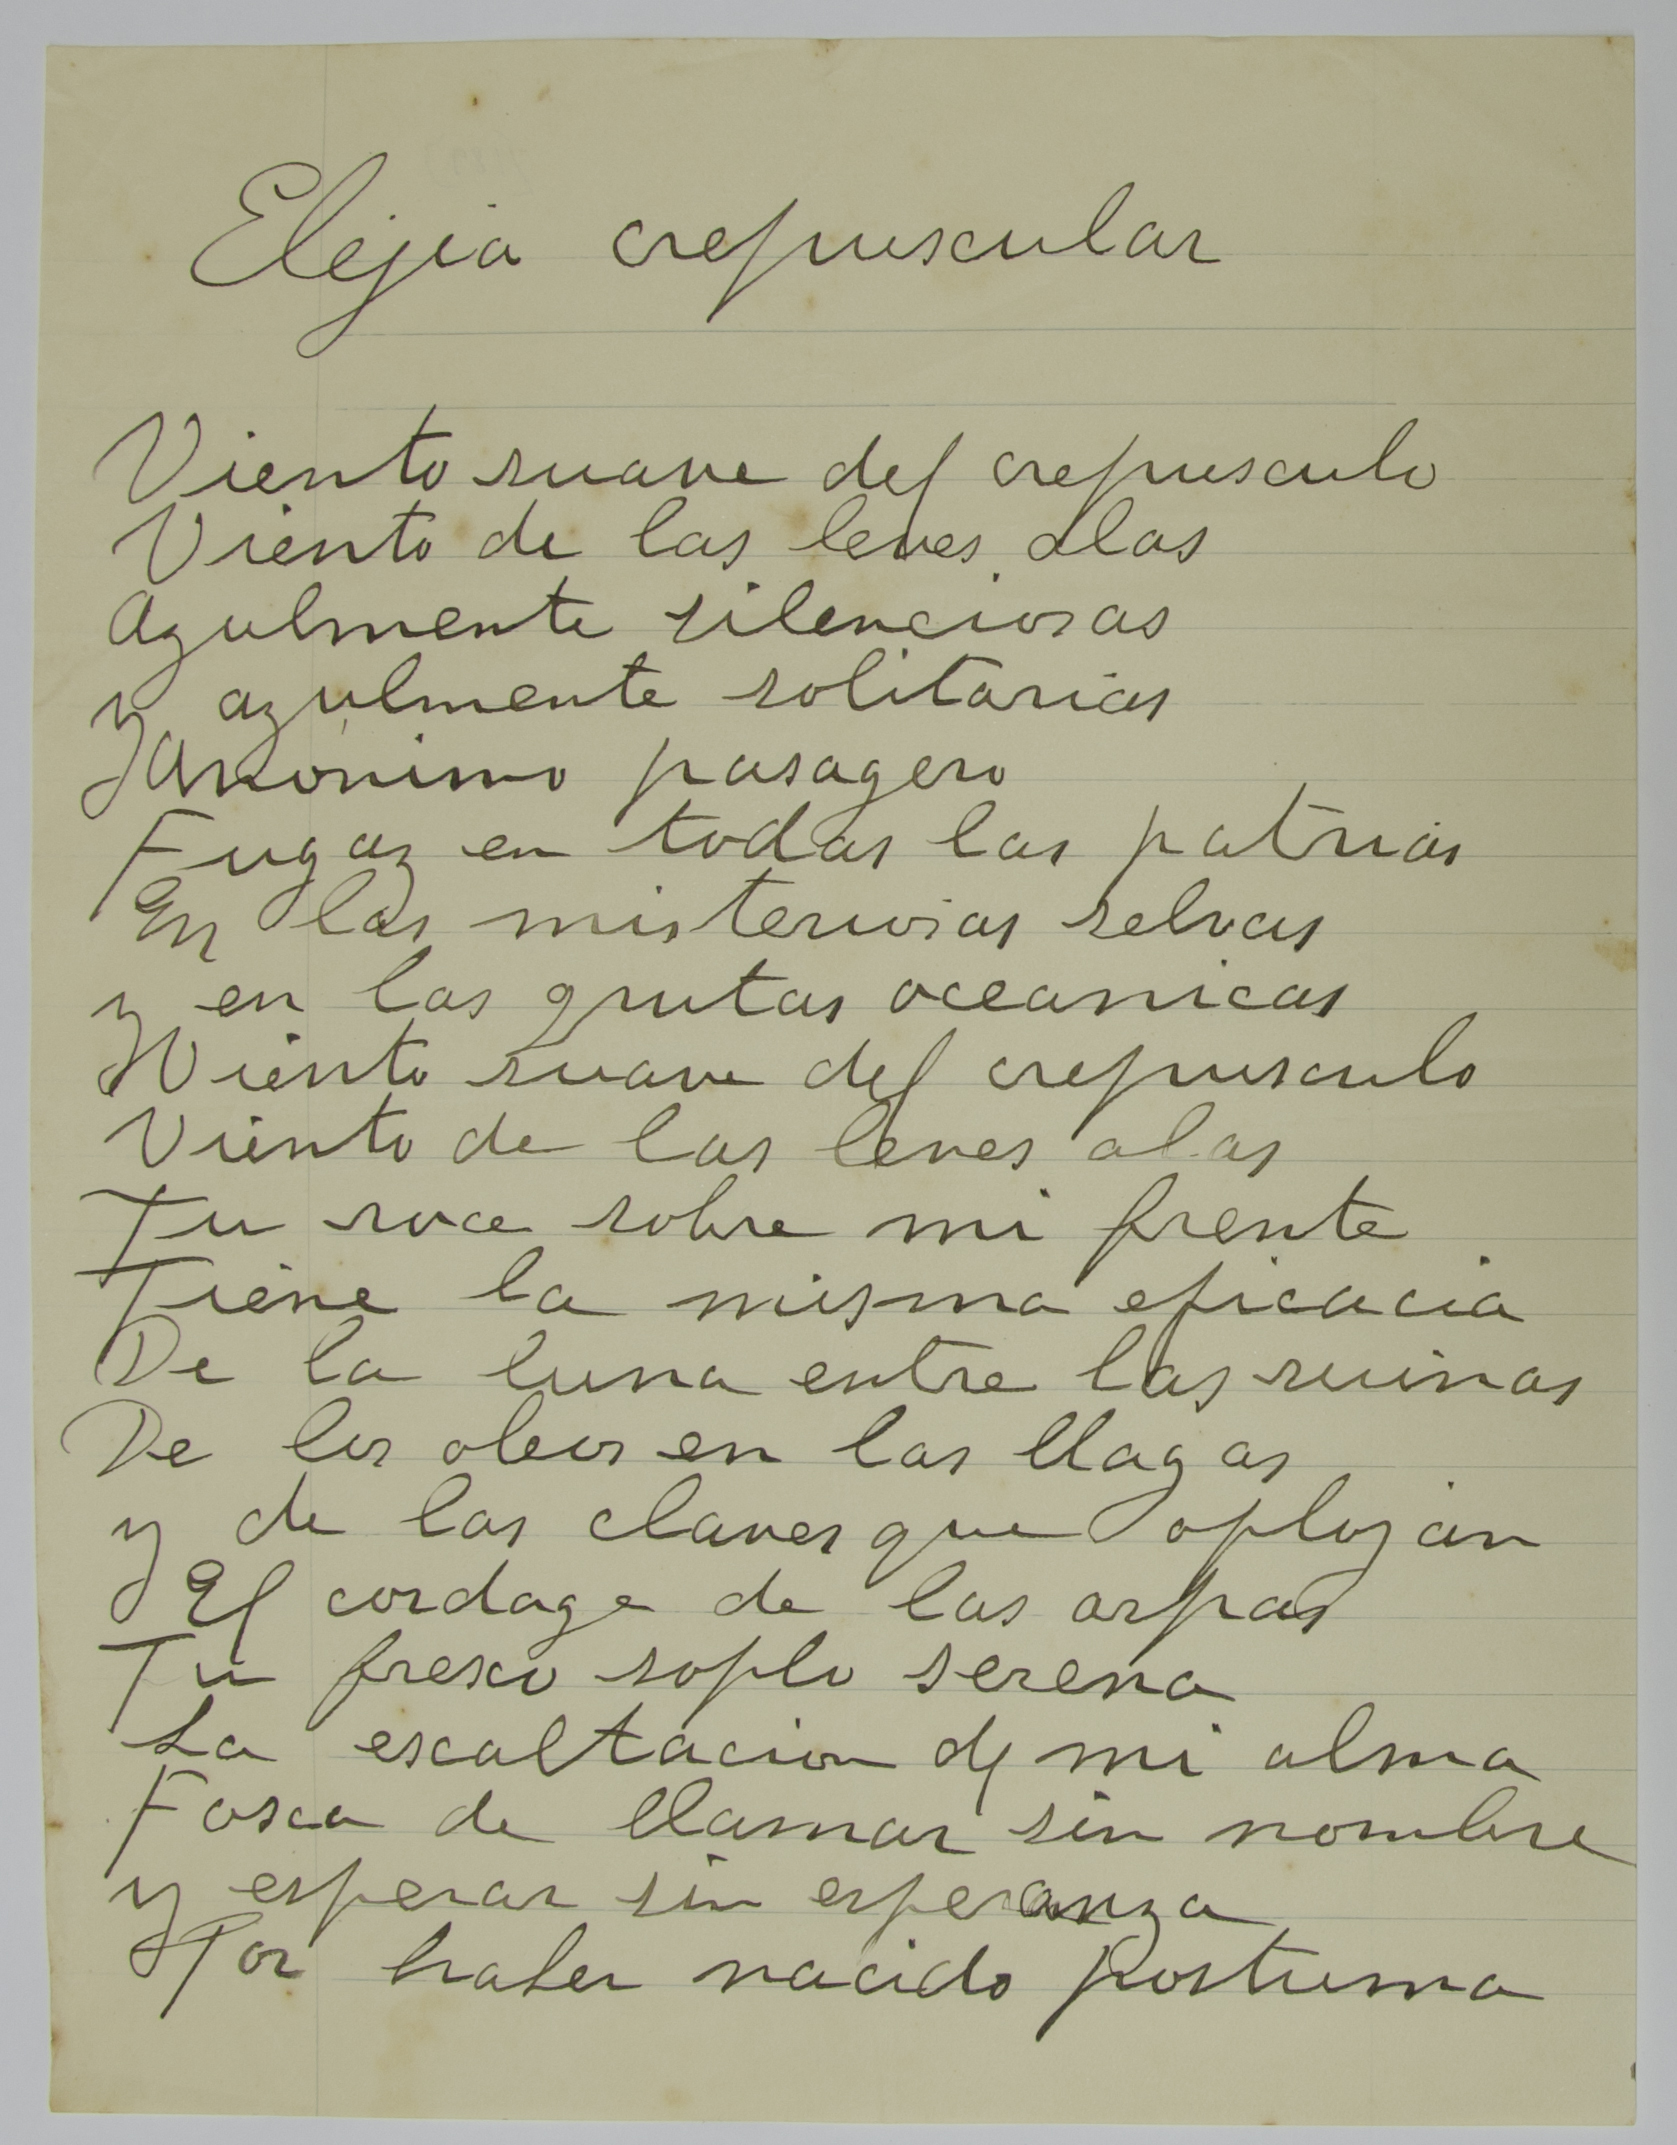 Elejia crepuscular
Viento suave del crepusculo
Viento de las leves alas
Azulmente silenciosas
y azulmente solitarias
Anonimo pasagero
Fugaz en todas las patrias
En las misteriosas selvas
y en las grutas oceanicas
Viento suave del crepusculo
Viento de las leves alas
Tu roce sobre mi frente
Tiene la misma eficacia
De la luna entre las ruinas
De los oleos en las llagas
y de las claves que aflojan
El cordage de las arpas
Tu fresco soplo serena
La escaltacion de mi alma
Fosca de llamar sin nombre
y esperar sin esperanza
Por haber nacido postuma